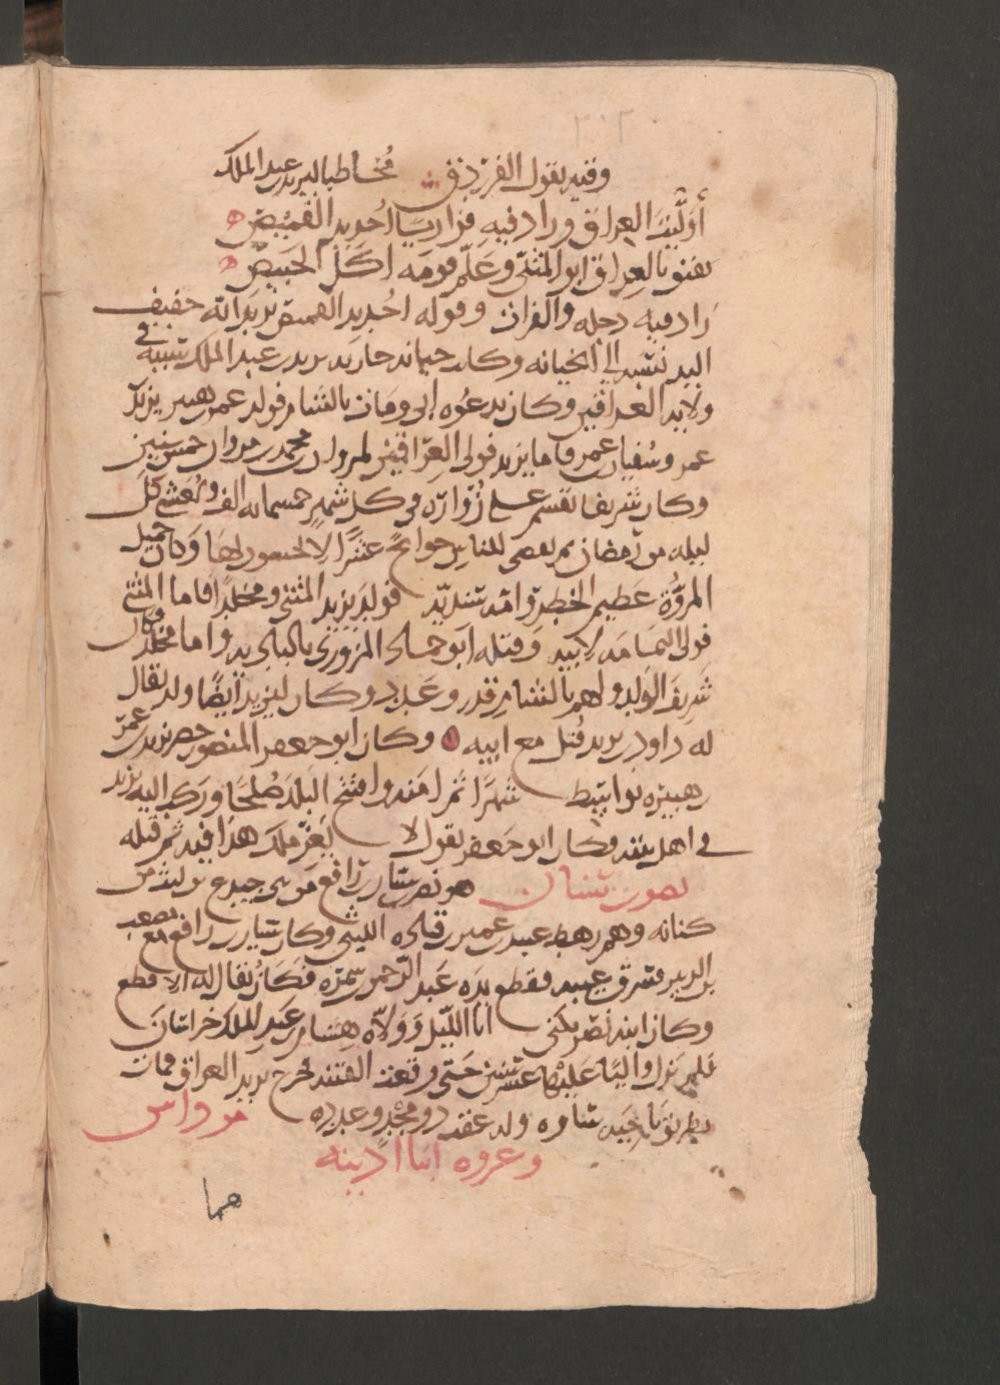 وفيه يقول الفرزدق مخاطبا ليزيد بن عبد الملك
أولّيت العراق ورافديه فزاريا أحذ يد القميص
تفنق بالعراق ابو المثنى وعلّم قومه اكل الخبيص
رافديه دجله والفرات وقوله احذ يد القميص يريد انه خفيف
اليد نسبه الى الخيانه وكان يزيد بن عبد الملك
ولايه العراقين وكان يدعوه ابن ومات بالشام فولد عمر بن هبيره يزيد بن
عمر وسفيان بن عمر فاما يزيد فولى العراقين لمروان بن محمد بن مروان خمس سنين
وكان شريفا يقسم على زواره في كل شهر خمسمائه الف ويعشي كل
ليله من رمضان ثم يقضي للناس حوائج عشرا لا يجلسون لها وكان جميل
المروّة عظيم الخطر وامه سنديّه فولد يزيد المثنى ومخلدا فاما المثنى
فولى اليمامه لابيه وقتله ابو حماد المروزي بالباديه واما مخلد فكان
شريف الولد ولهم بالشام قدر وعدد وكان ليزيد ايضا ولد يقال
له داود بن يزيد قتل مع ابيه وكان ابو جعفر المنصور حصر يزيد بن عمر
بن هبيره بواسط شهرا ثم امنه وافتتح البلد صلحا وركب اليه يزيد
في اهل بيته فكان ابو جعفر يقول لا يعز ملك هذا فيه ثم قتله
نصر بن سيار هو نصر بن سيار بن رافع من بني جندع بن ليث من
كنانه وهم رهط عبيد بن عمير بن قتاده الليثي وكان سيار بن رافع مع مصعب
بن الزبير فسرق عيبه فقطع يده عبد الرحمن بن سمره فكان يقال له الاقطع
وكان ابنه نصر يكنى ابا الليث وولاه هشام بن عبد الملك خراسان
فلم يزل واليا عليها عشر سنين حتى وقعت الفتنه فخرج يريد العراق فمات
بطريق بناحيه ساوه وله عقب ذوو مجد وعدد
مرداس
وعروه ابنا ادينه
هما